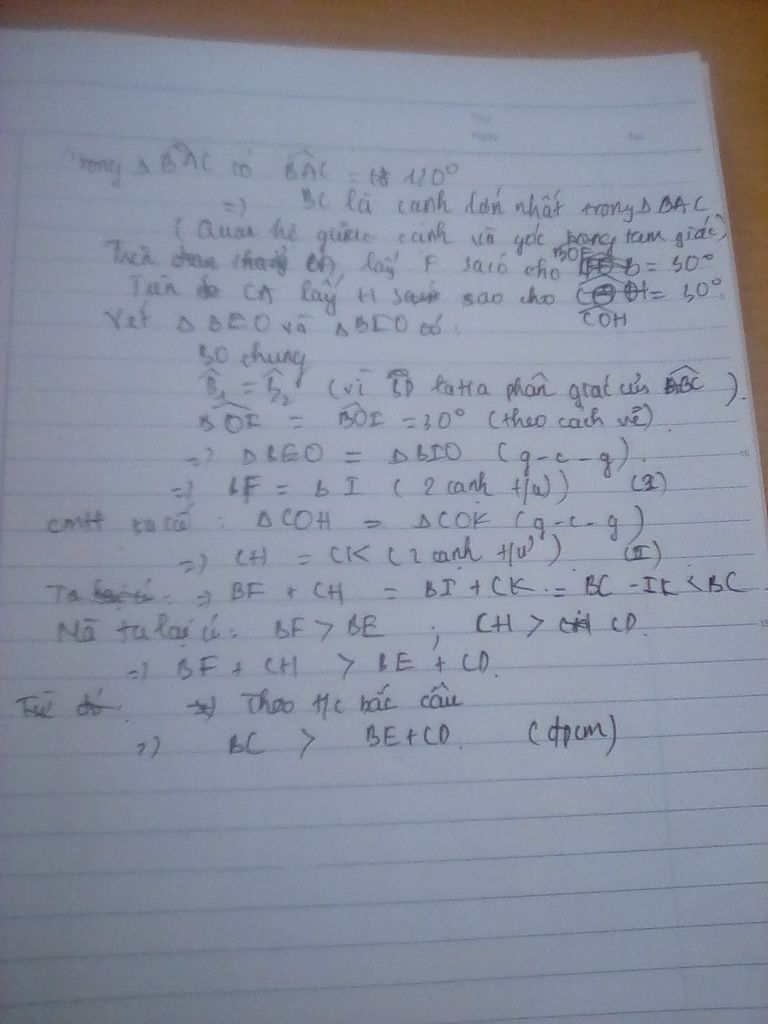 Trong Δ BAC có BÂC = 120°
=) BC là cạnh lớn nhất trong Δ BAC
( Quan hệ giữa cạnh và góc trong tam giác)
Trên lấy F sao cho BOF = 30°
Trên CA lấy H sao cho COH = 30°
Xét Δ BEO và Δ BIO có:
BO chung
B̂1 = B̂2 (vì là tia phân giác của ABC ).
BOI = 30° (theo cách vẽ)
=) Δ BEO = Δ BIO (g-c-g).
=) BF = BI ( 2 cạnh t/ư) (I)
cmtt ta có : ΔCOH = ΔCOK (g-c-g)
=) CH = CK ( 2 cạnh t/ư) (II)
Ta =) BF + CH = BI + CK = BC - IK < BC
Mà ta lại có: BF > BE ; CH > CD.
=) BF + CH > BE + CD.
Từ đó =) Theo t/c bắc cầu
=) BC > BE+CD. (đpcm)